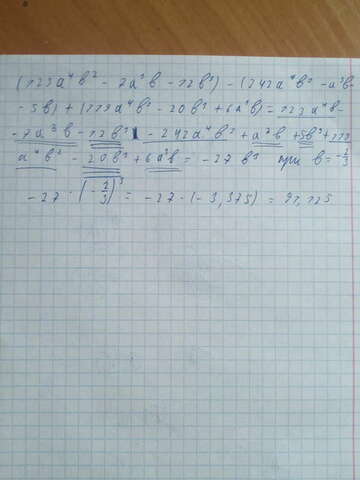 (123a⁴b² - 7a³b - 12b³) - (242a⁴b² - a³b-
- 5b) + (119a⁴b² - 20b³ + 6a³b) = 123a⁴b²-
- 7a³b - 12b³ - 242a⁴b² + a³b + 5b³ + 119
a⁴b² - 20b³ + 6a³b = -27b³ при b = -1/3
-27 · (-1/3)³ = -27 · (-3,375) = 91,125